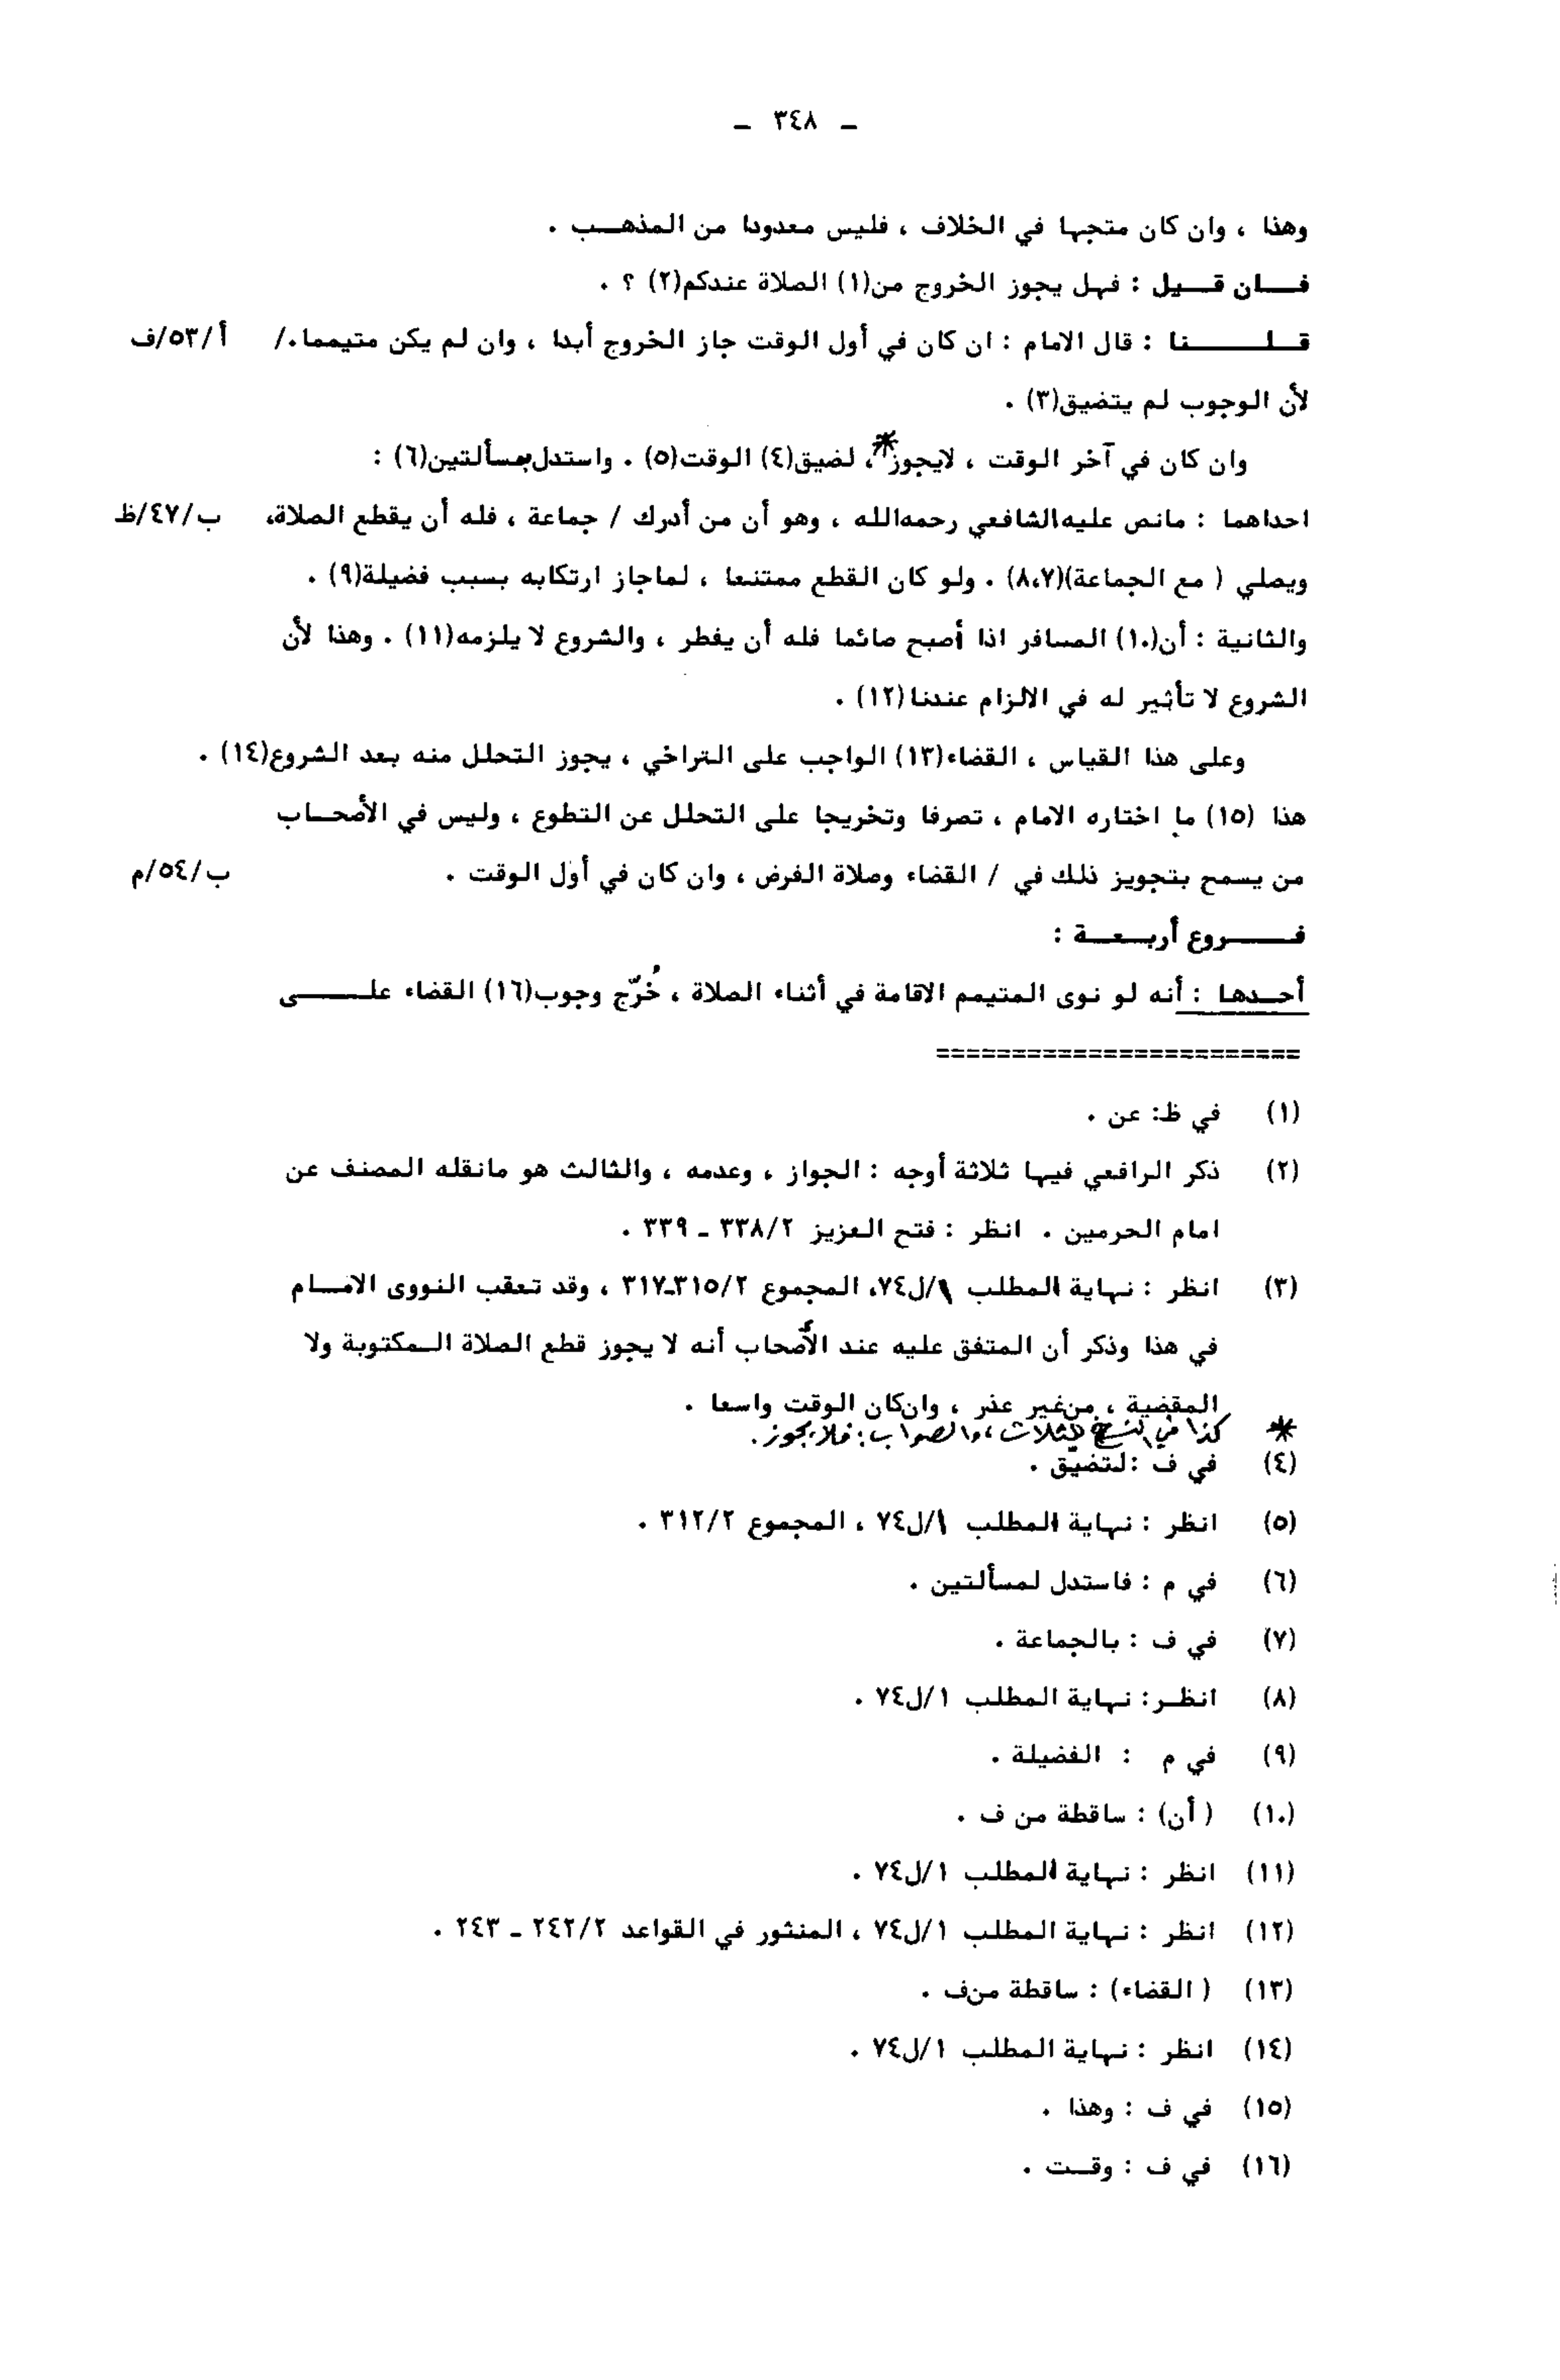 - ٣٤٨ -
وهذا ، وان كان متجها في الخلاف ، فليس معدودا من المذهـب .
فــان قــيل : فهل يجوز الخروج من(١) الصلاة عندكم(٢) ؟ .
قـلــــنا : قال الامام : ان كان في أول الوقت جاز الخروج أبدا ، وان لم يكن متيمما ./ أ/٥٣/ف
لأن الوجوب لم يتضيق(٣) .
وان كان في آخر الوقت ، لايجوز*، لضيق(٤) الوقت(٥) . واستدل بمسألتين(٦) :
احداهما : مانص عليه الشافعي رحمه الله ، وهو أن من أدرك / جماعة ، فله أن يقطع الصلاة، ب/٤٧/ظ
ويصلي ( مع الجماعة)(٨،٧) . ولو كان القطع ممتنعا ، لماجاز ارتكابه بسبب فضيلة(٩) .
والثانية : أن(١٠) المسافر اذا أصبح صائما فله أن يفطر ، والشروع لا يلزمه(١١) . وهذا لأن
الشروع لا تأثير له في الالزام عندنا (١٢) .
وعلى هذا القياس ، القضاء(١٣) الواجب على التراخي ، يجوز التحلل منه بعد الشروع(١٤) .
هذا (١٥) ما اختاره الامام ، تصرفا وتخريجا على التحلل عن التطوع ، وليس في الأصحـاب
من يسمح بتجويز ذلك في / القضاء وصلاة الفرض ، وان كان في أول الوقت . ب/٥٤/م
فــــروع أربــعــة :
أحــدها : أنه لو نوى المتيمم الاقامة في أثناء الصلاة ، خُرّج وجوب(١٦) القضاء علــــى
========================
(١) في ظ: عن .
(٢) ذكر الرافعي فيها ثلاثة أوجه : الجواز ، وعدمه ، والثالث هو مانقله المصنف عن
امام الحرمين . انظر : فتح العزيز ٣٣٨/٢ - ٣٣٩ .
(٣) انظر : نهاية المطلب ١/ل٧٤، المجموع ٣١٥/٢-٣١٧ ، وقد تعقب النووى الامـام
في هذا وذكر أن المتفق عليه عند الأصحاب أنه لا يجوز قطع الصلاة الـمكتوبة ولا
المقضية ، من غير عذر ، وان كان الوقت واسعا .
* كذا في النسخ الثلاث، والصواب: فلا يجوز.
(٤) في ف : لتضيّق .
(٥) انظر : نهاية المطلب ١/ل٧٤ ، المجموع ٣١٢/٢ .
(٦) في م : فاستدل لمسألتين .
(٧) في ف : بالجماعة .
(٨) انظـر: نهاية المطلب ١/ل٧٤ .
(٩) في م : الفضيلة .
(١٠) ( أن) : ساقطة من ف .
(١١) انظر : نهاية المطلب ١/ل٧٤ .
(١٢) انظر : نهاية المطلب ١/ل٧٤ ، المنثور في القواعد ٢٤٢/٢ - ٢٤٣ .
(١٣) ( القضاء) : ساقطة من ف .
(١٤) انظر : نهاية المطلب ١/ل٧٤ .
(١٥) في ف : وهذا .
(١٦) في ف : وقــت .